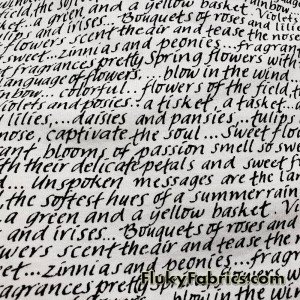 a green and a yellow basket. Violets
and irises... Bouquets of roses and lilies
flowers scent the air and tease the nose
sweet... zinnias and peonies... fragrant
fragrances pretty Spring flowers with
language of flowers. ... blow in the wind
colorful... flowers of the field,
violets and posies... a tisket, a tasket...
lilies... daisies and pansies... tulips
nose, captivate the soul .... Sweet flo
blooms of passion smell so sweet
with their delicate petals and sweet
... Unspoken messages are the lan
the softest hues of a summer rain
a green and a yellow basket. Vi
and irises... Bouquets of roses and
flowers scent the air and tease the n
sweet... zinnias and peonies... frag
FlukyFabrics.com